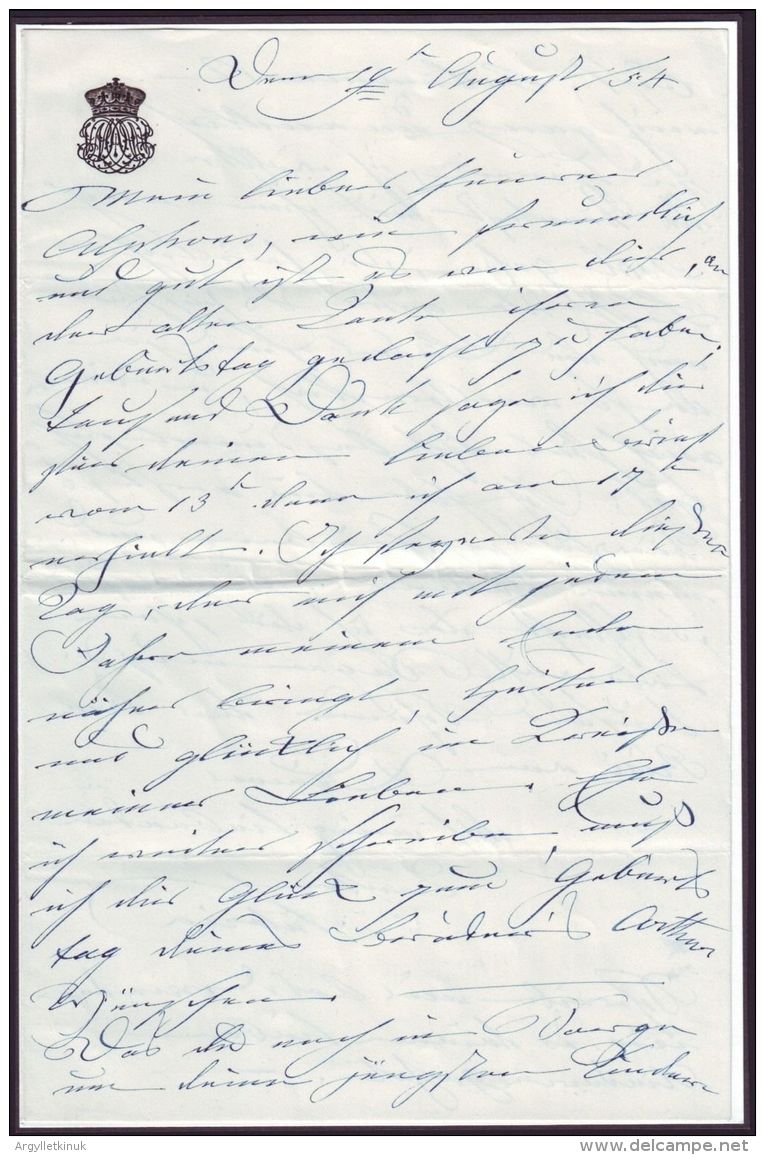 Den 19t August /54
Mein lieber theurer
Alphons, wie freundlich
und gut ist es von dir, an
der alten Tante ihren
Geburtstag gedacht zu haben,
tausend Dank sage ich dir
für deinen lieben Brief
vom 13t den ich am 17t
erhielt. Ich feyerte diesen
Tag, der mich mit jedem
Jahre meinem Ende
näher bringt, heiter
und glücklich, im Kreise
meiner Lieben. Ehe
ich weiter schreibe, muß
ich dir Glück zum Geburts
tag deines Bruder's Arthur
wünschen.
Das du noch in Sorge
um deine jüngsten Kinder
Argylletkinuk
delcampe.net